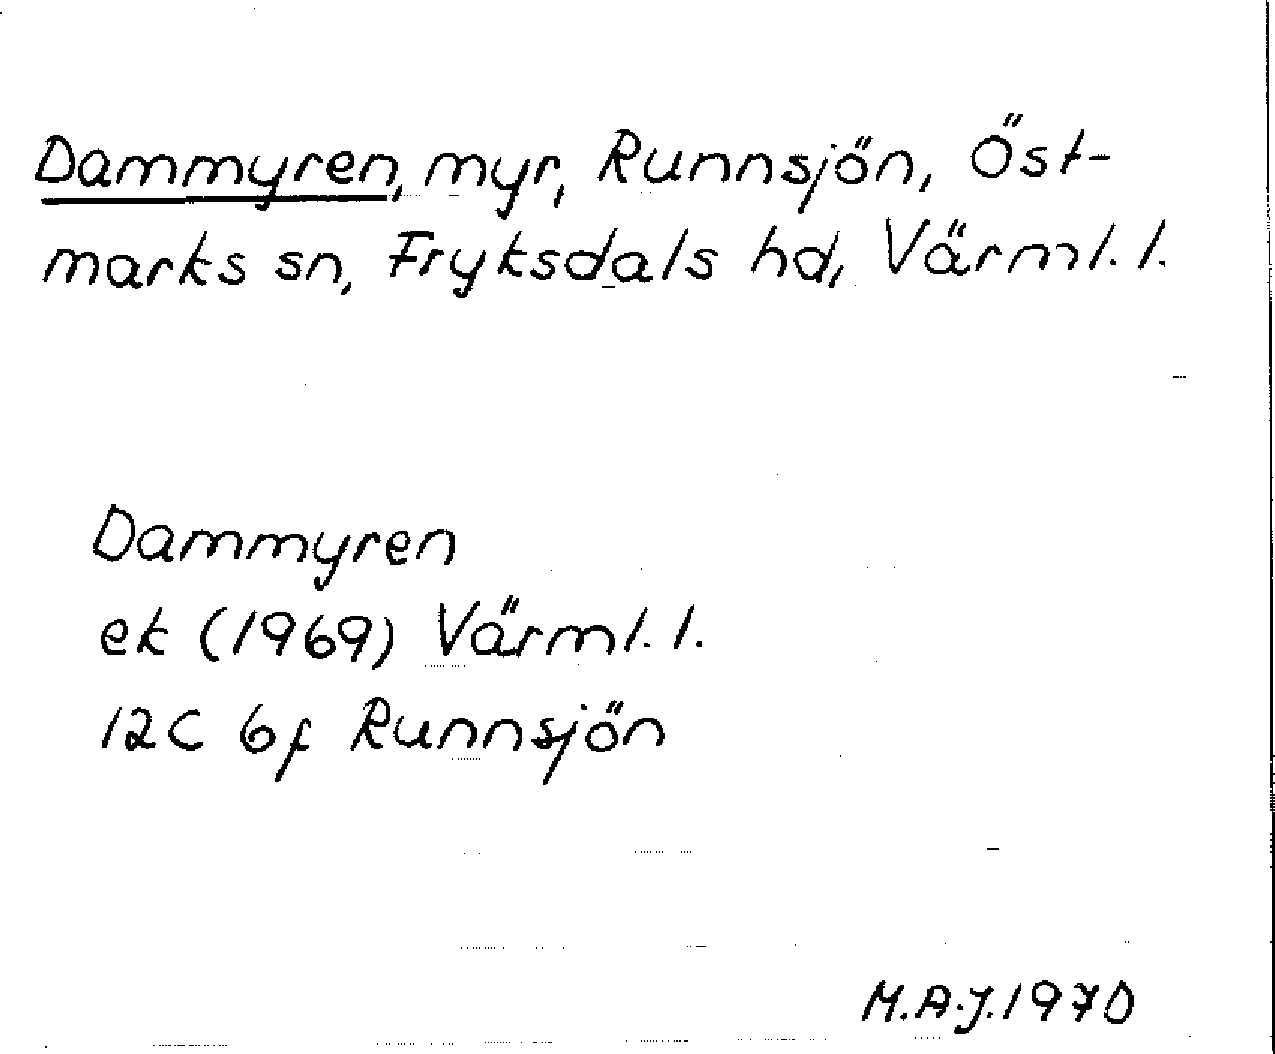 Dammyren, myr, Runnsjön, Öst-
marks sn, Fryksdals hd, Värml. l.
Dammyren
ek (1969) Värml. l.
12C 6f Runnsjön
M.A.J. 1970